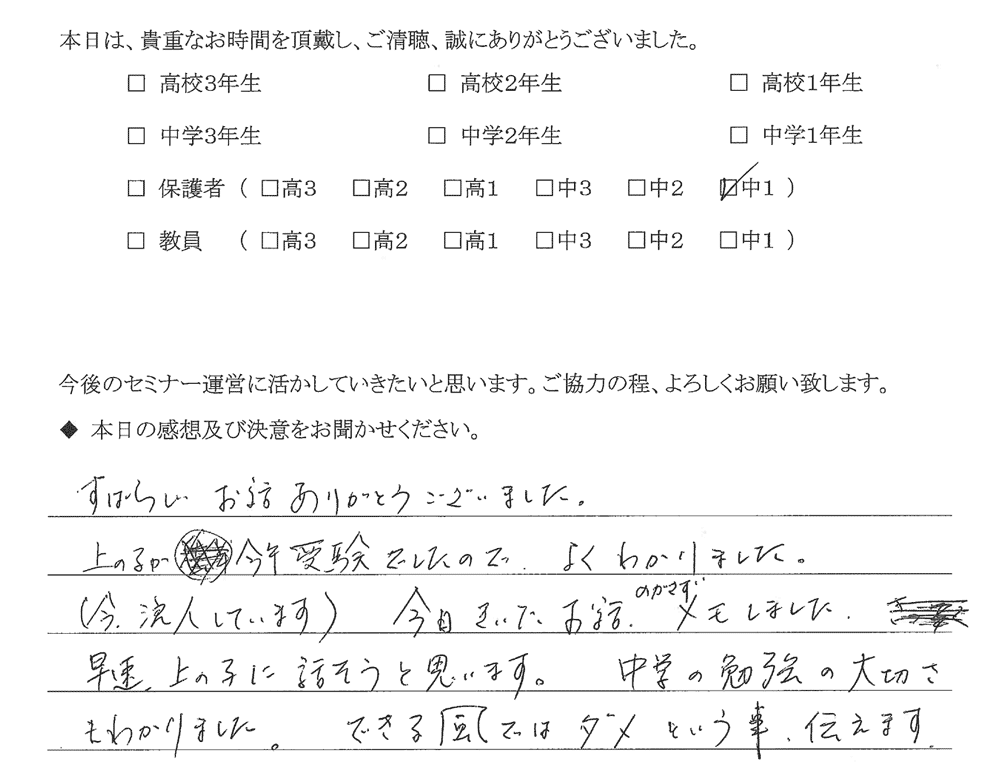 本日は、貴重なお時間を頂戴し、ご清聴、誠にありがとうございました。
□ 高校3年生 □ 高校2年生 □ 高校1年生
□ 中学3年生 □ 中学2年生 □ 中学1年生
□ 保護者 ( □高3 □高2 □高1 □中3 □中2 ☑中1 )
□ 教員 ( □高3 □高2 □高1 □中3 □中2 □中1 )
今後のセミナー運営に活かしていきたいと思います。ご協力の程、よろしくお願い致します。
◆ 本日の感想及び決意をお聞かせください。
すばらしい お話 ありがとうございました。
上の子が 今年 受験でしたので、よくわかりました。
(今、浪人しています) 今日 きいた お話、のがさず メモしました。
早速、上の子に 話そうと思います。 中学の勉強の大切さ
もわかりました。 できる風ではダメという事、伝えます。